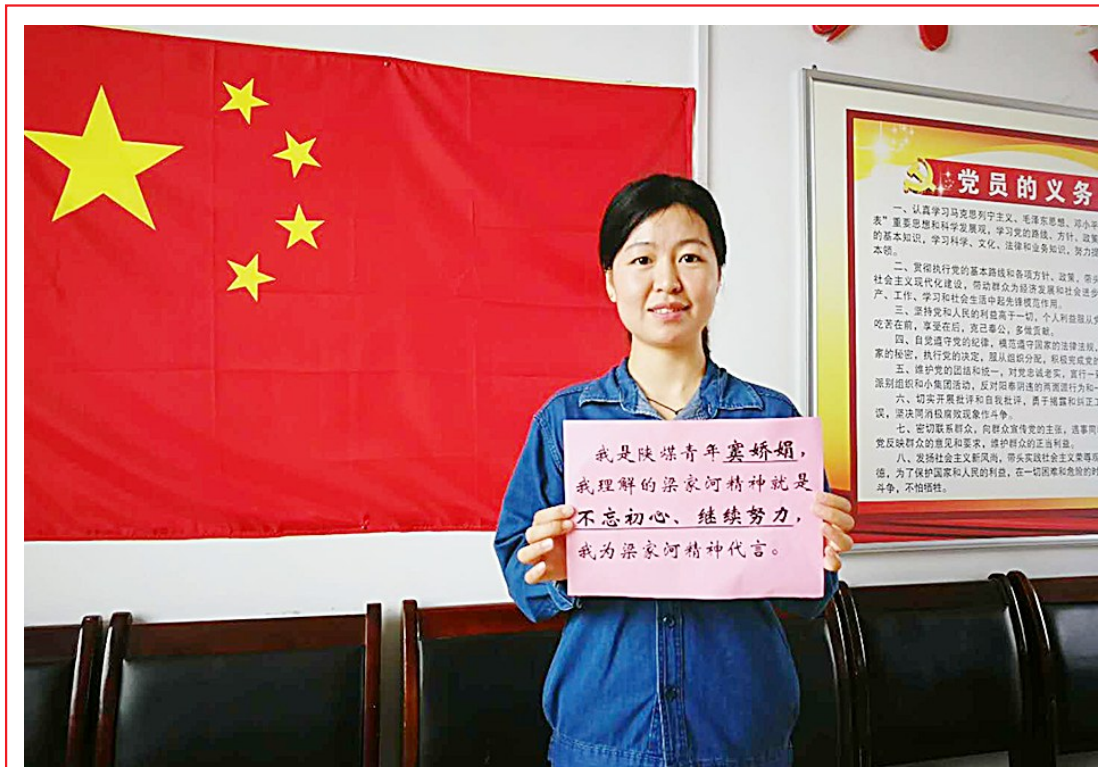 我是陕煤青年窦娇娟，
我理解的梁家河精神就是
不忘初心、继续努力，
我为梁家河精神代言。
党员的义务
一、认真学习马克思列宁主义、毛泽东思想、邓小平
表”重要思想和科学发展观，学习党的路线、方针、政策
的基本知识，学习科学、文化、法律和业务知识，努力提
本领。
二、贯彻执行党的基本路线和各项方针、政策，带头
社会主义现代化建设，带动群众为经济发展和社会进步
产、工作、学习和社会生活中起先锋模范作用。
三、坚持党和人民的利益高于一切，个人利益服从党
吃苦在前，享受在后，克己奉公，多做贡献。
四、自觉遵守党的纪律，模范遵守国家的法律法规，
家的秘密，执行党的决定，服从组织分配，积极完成党的
五、维护党的团结和统一，对党忠诚老实，言行一致
派别组织和小集团活动，反对阳奉阴违的两面派行为和一
六、切实开展批评和自我批评，勇于揭露和纠正工
误，坚决同消极腐败现象作斗争。
七、密切联系群众，向群众宣传党的主张，遇事同
党反映群众的意见和要求，维护群众的正当利益。
八、发扬社会主义新风尚，带头实践社会主义荣辱观
德，为了保护国家和人民的利益，在一切困难和危险的时
斗争，不怕牺牲。